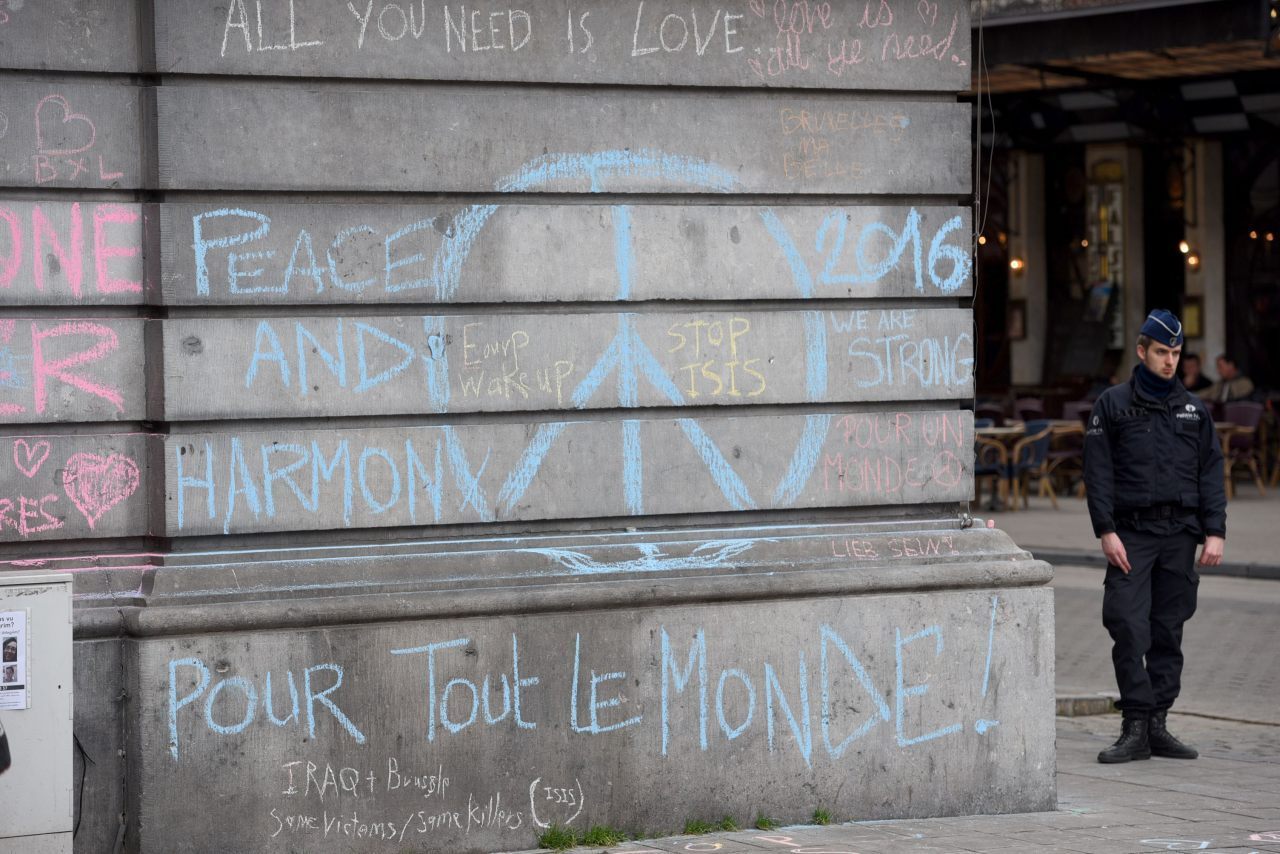 ALL YOU NEED IS LOVE
love is
all ye need.
BXL
BRUXELLES
MA
BELLE
ONE
PEACE
2016
ER
AND
Eourp
Wake up
STOP
ISIS
WE ARE
STRONG
HARMONY
POUR UN
MONDE
RES
LIEB SEIN!
POUR Tout LE MONDE!
IRAQ + Brussle
Same Victoms/same killers (ISIS)